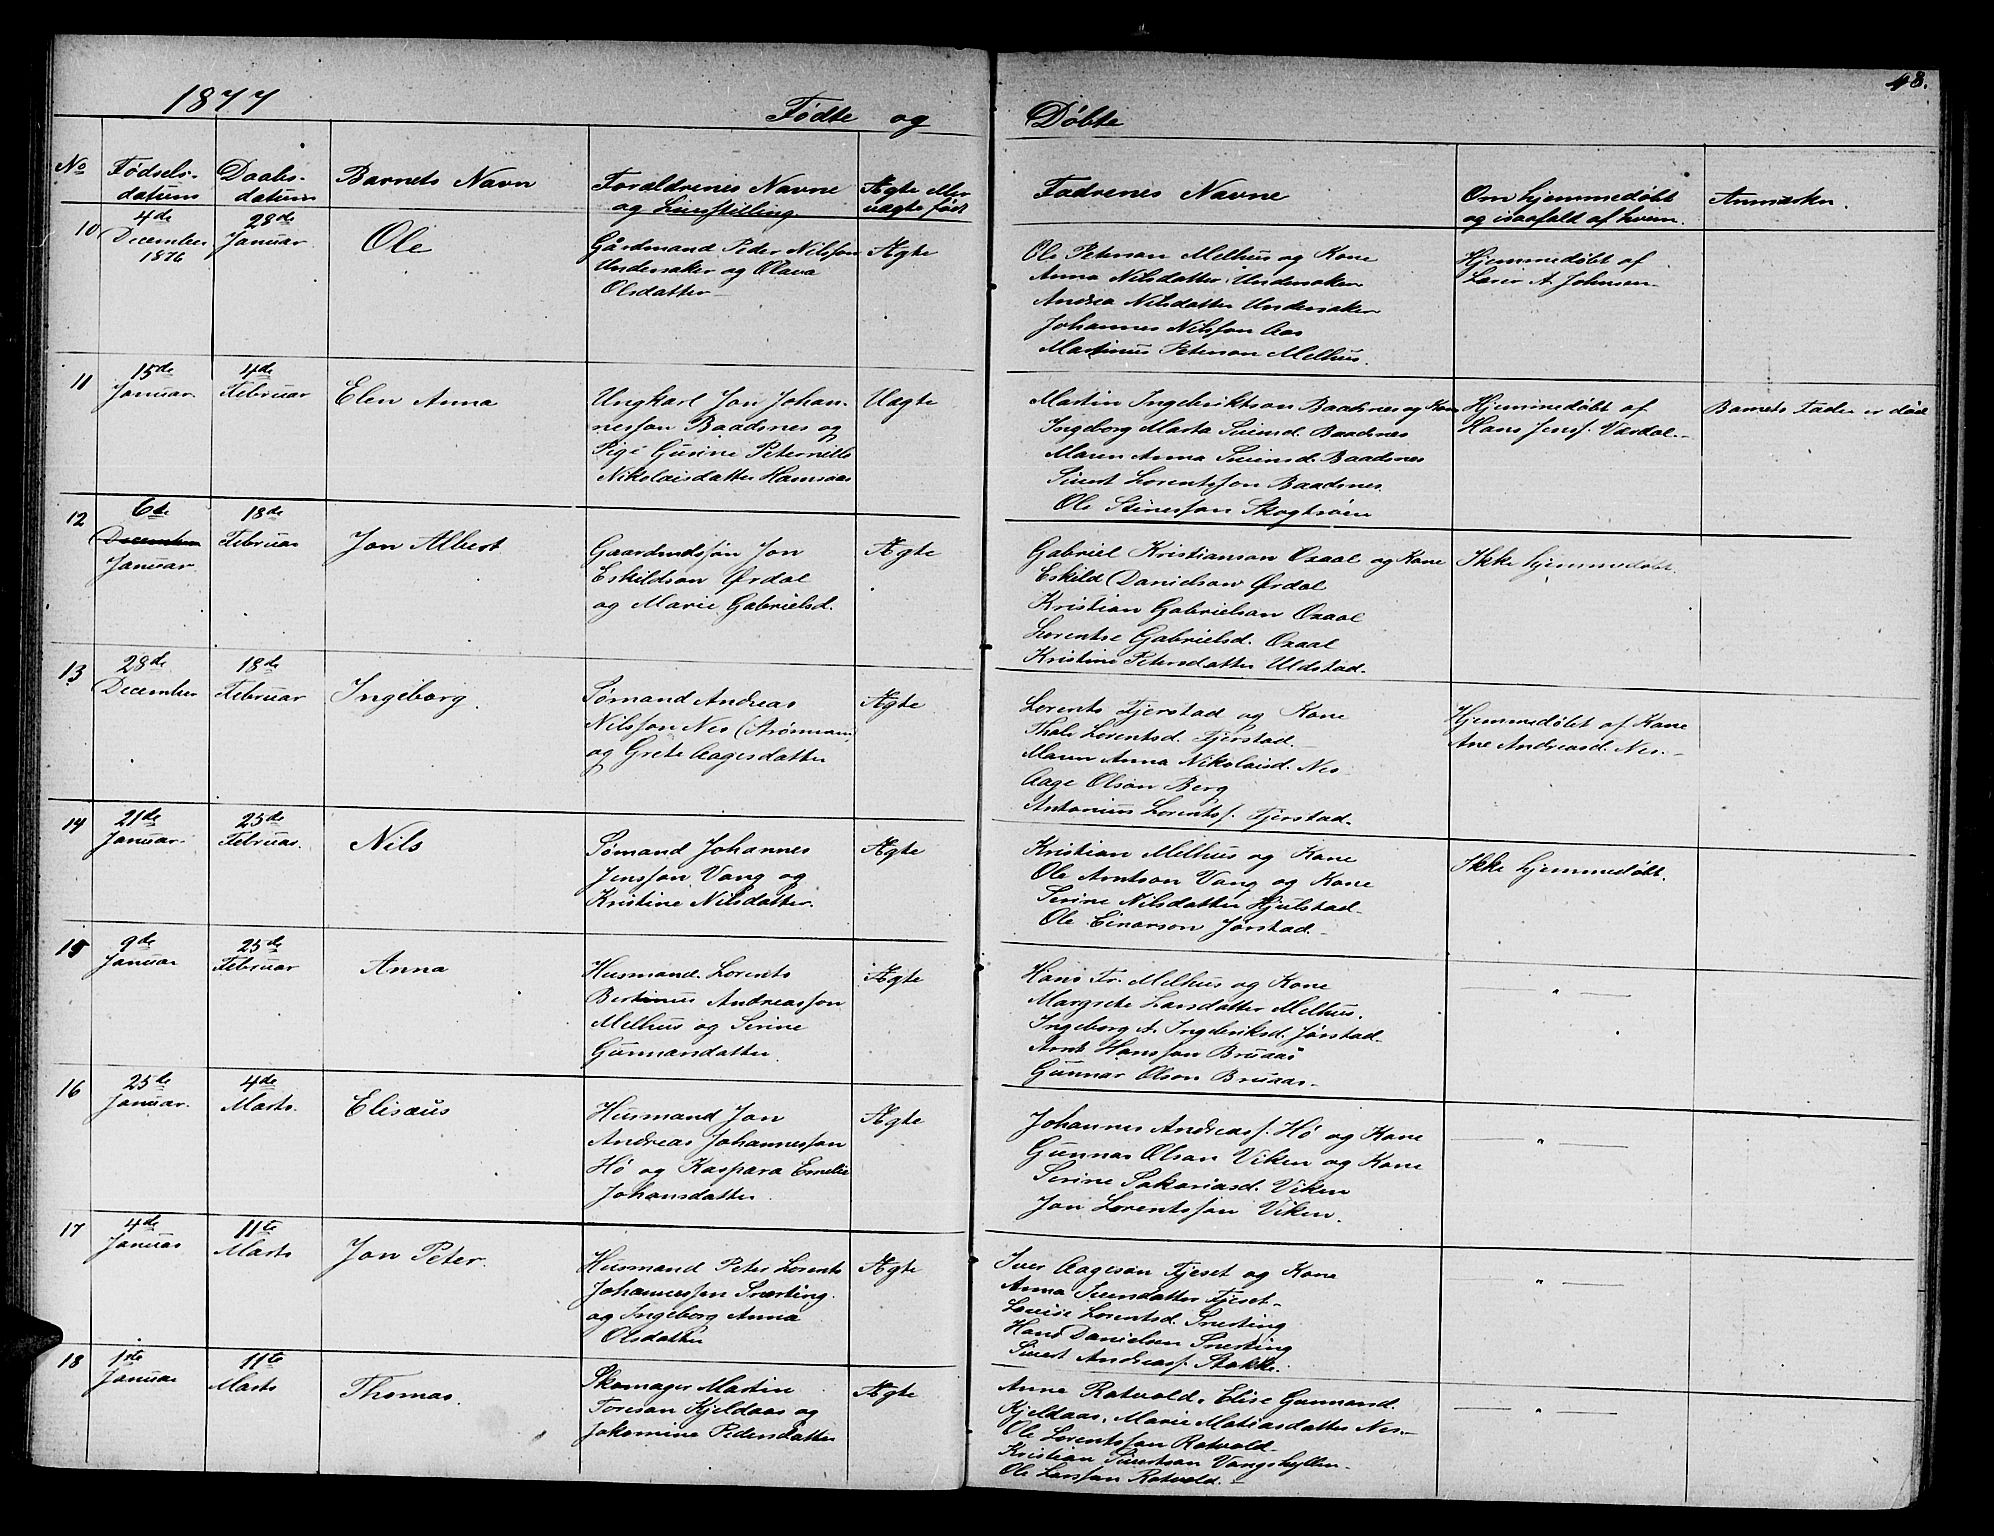 1877 Fødte og Døbte 48.
No Fødselsdatum Daabsdatum Barnets Navn Forældrenes Navne og Livsstilling. Ægte eller uægte født Fadrenes Navne Om hjemmedøbt og isaafald af hvem. Anmærkn.
10 4de December 1876 28de Januar Ole
Gårdmand Peder Nilsson
Undersaker og Olava
Olsdatter
Ægte
Ole Peterson Melhus og Kone
Anna Nilsdatter Undersaker
Andrea Nilsdatter Undersaker
Johannes Nilsson Aas
Martinus Peterson Melhus.
Hjemmedøbt af
Lærer A. Johnsen
11 15de Januar 4de Februar Elen Anna
Ungkarl Jon Johan-
nesson Baadsnes og
Pige Gurine Peternille
Nikolaisdatter Hamsaas
Uægte
Martin Ingebriktson Baadsnes og Kone
Ingeborg Marta Siversd. Baadsnes
Maren Anna Siversd. Baadsnes
Sivert Lorentsson Baadsnes
Ole Stenesson
Hjemmedøbt af
Hans Jensf. Værdal.
Barnets Fader er død
12 6te December Januar 18de Februar Jon Albert
Gaardmdssøn Jon
Eskildson Ørdal
og Marie Gabrielsd.
Ægte
Gabriel Kristianson Oxaal og Kone
Eskild Danielson Ørdal
Kristian Gabrielson Oxaal
Lorentse Gabrielsd. Oxaal
Kristine Petersdatter Uldstad.
Ikke hjemmedøbt.
13 28de December 18de Februar Ingeborg.
Sømand Andreas
Nilsson Nes
og Grete Aagesdatter
Ægte
Lorents Fjerstad og Kone
Thale Lorentsd. Fjerstad.
Maren Anna Nikolaisd. Nes
Aage Olson Berg
Antonius Lorentsf. Fjerstad.
Hjemmedøbt af Kone
Ane Andreasd. Nes.
14 21de Januar. 25de Februar. Nils
Sømand Johannes
Jensson Vang og
Kristine Nilsdatter.
Ægte
Kristian Melhus og Kone
Ole Arntson Vang og Kone
Serine Nilsdatter Hjulstad
Ole Einarson Jørstad.
Ikke hjemmedøbt.
15 9de Januar 25de Februar Anna
Husmand Lorents
Bertinus Andreasson
Melhus og Serine
Gunnarsdatter.
Ægte
Hans Fr. Melhus og Kone
Margrete Larsdatter Melhus.
Ingeborg A. Ingebriksd. Jørstad.
Arnt Hansson Bruaas
Gunnar Olson Bruaas.
"
16 25de Januar. 4de Marts. Elisæus
Husmand Jon
Andreas Johannesson
Hø og Kaspara Emelie
Johansdatter.
Ægte
Johannes Andreasf. Hø og Kone
Gunnar Olson Viken og Kone
Serine Sakariasd. Viken
Jon Lorentsson Viken.
"
17 4de Januar 11te Marts Jon Peter.
Husmand Peter Lorents
Johannesson Snærting
og Ingeborg Anna
Olsdatter
Ægte
Iver Aageson Fjeset og Kone
Anna Iversdatter Fjeset
Lovise Lorentsd. Snerting
Hans Danielsen Snerting
Sivert Andreasf. Stakke.
"
18 1ste Januar 11te Marts Thomas.
Skomager Martin
Toreson Kjeldaas og
Jakomine Pedersdatter
Ægte
Anne Ratvold. Elise Gunnarsd.
Kjeldaas. Marie Matiasdatter Nes.
Ole Lorentsson Ratvold
Kristian Sivertson Vangshyllen
Ole Larsson Ratvold.
"